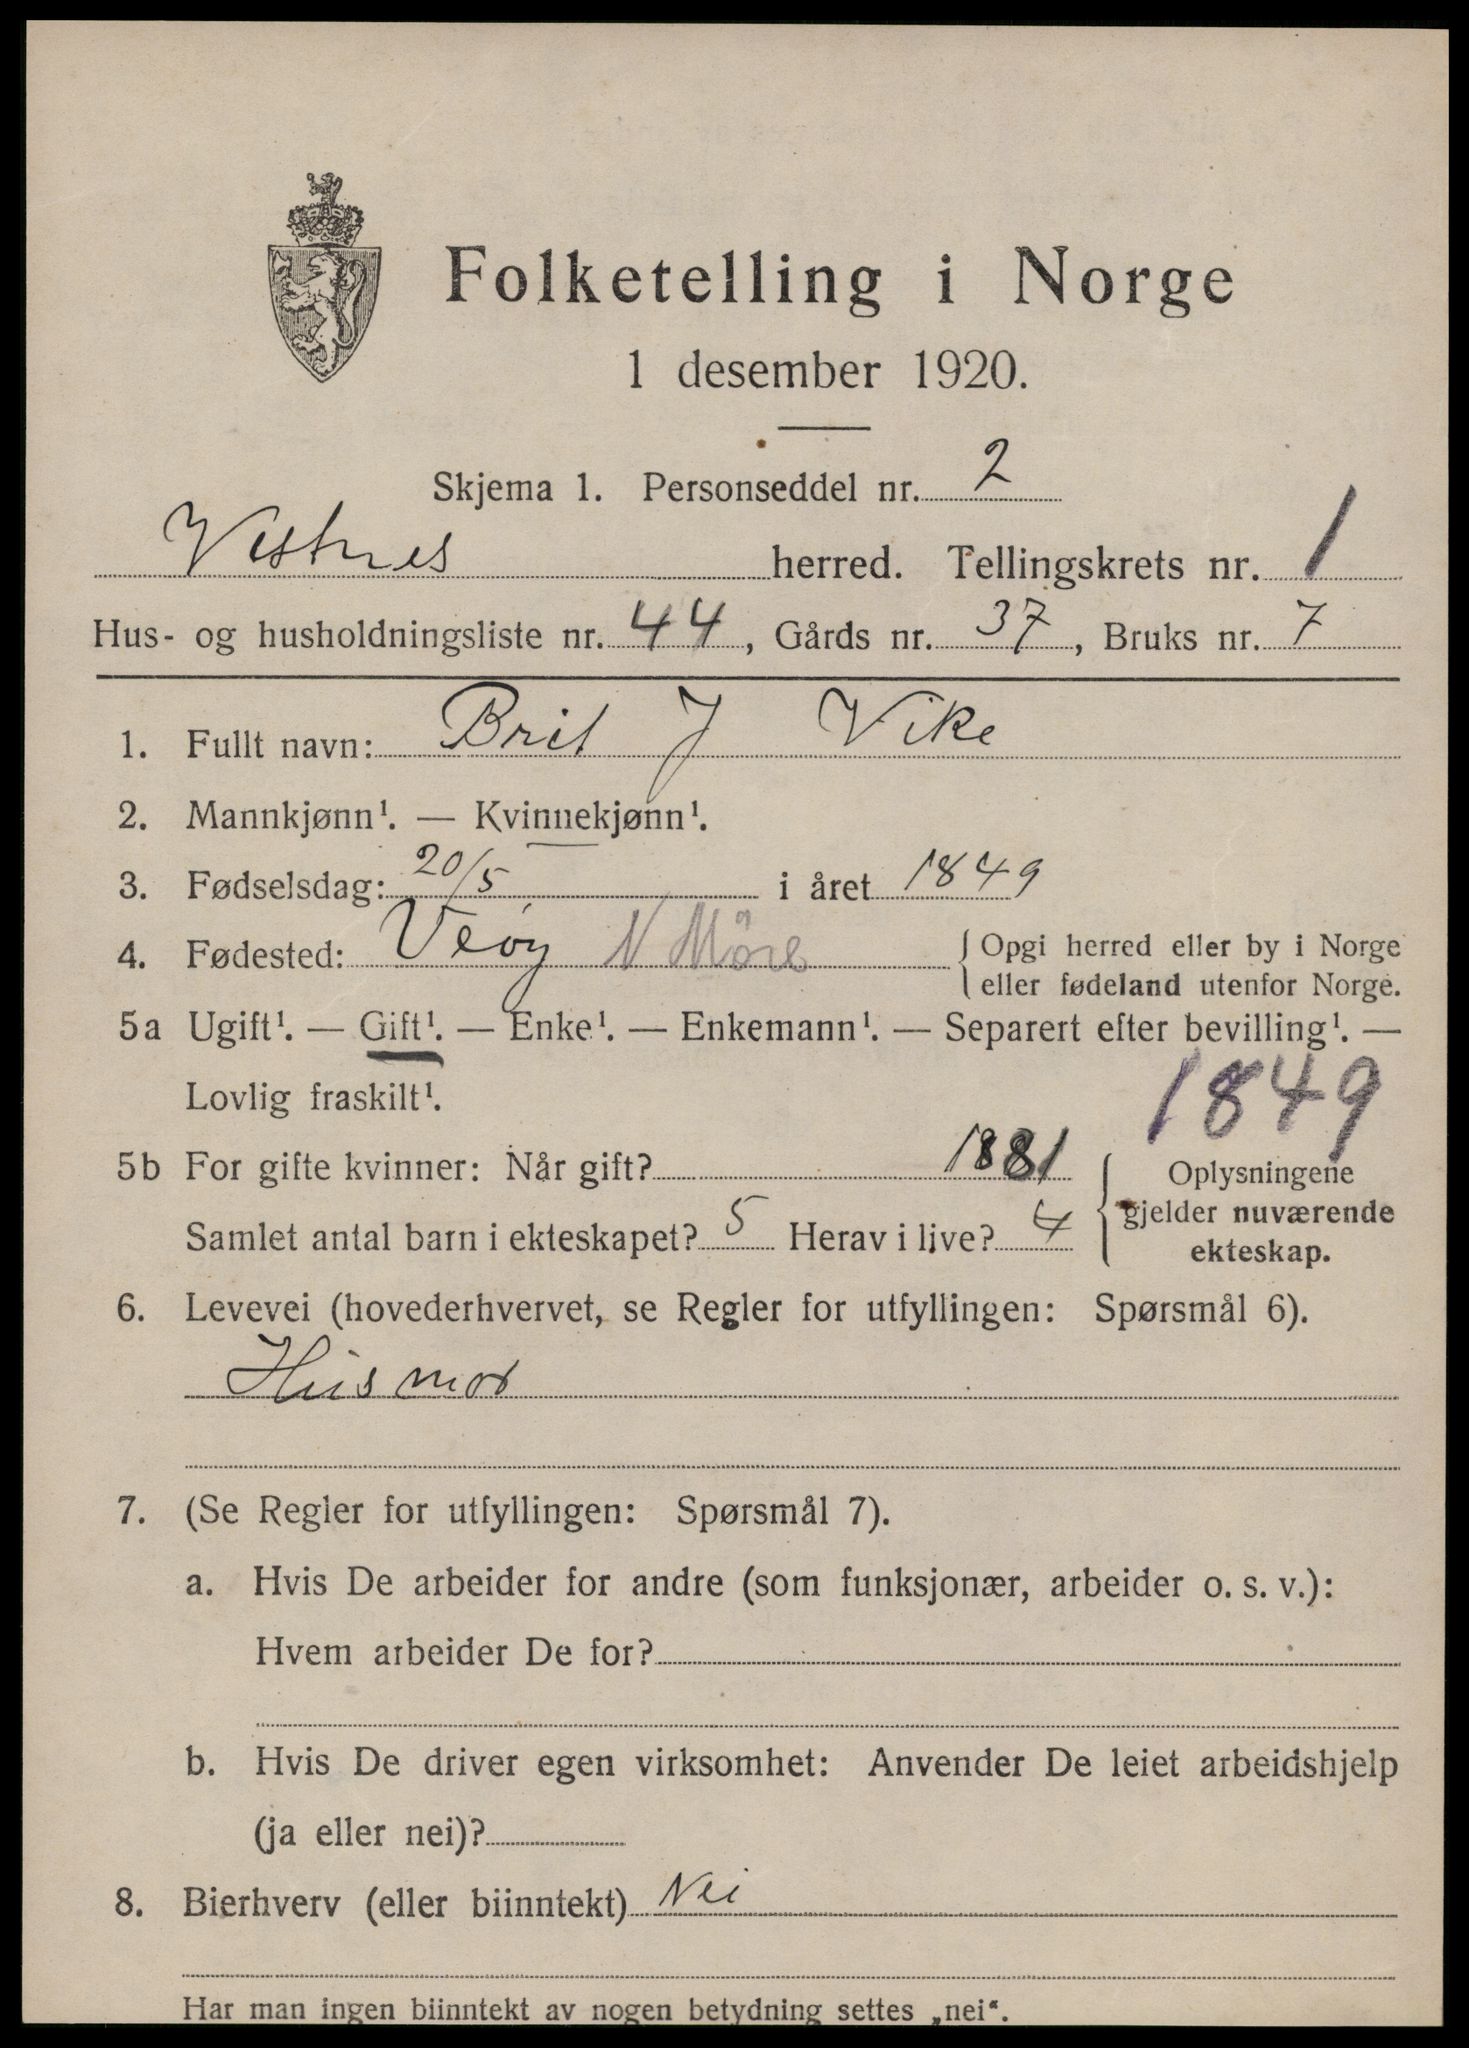 Folketelling i Norge
1 desember 1920.
Skjema 1. Personseddel nr. 2
Vestnes herred. Tellingskrets nr. 1
Hus- og husholdningsliste nr. 44, Gårds nr. 37, Bruks nr. 7
1. Fullt navn: Brit J Vike
2. Mannkjønn¹. — Kvinnekjønn¹.
3. Fødselsdag: 20/5 i året 1849
4. Fødested: Veøy N Möre { Opgi herred eller by i Norge
eller fødeland utenfor Norge.
5a Ugift¹. — Gift¹. — Enke¹. — Enkemann¹. — Separert efter bevilling¹. —
Lovlig fraskilt¹.
1849
5b For gifte kvinner: Når gift? 1881
Samlet antal barn i ekteskapet? 5 Herav i live? 4
Oplysningene
gjelder nuværende
ekteskap.
6. Levevei (hovederhvervet, se Regler for utfyllingen: Spørsmål 6).
Husmor
7. (Se Regler for utfyllingen: Spørsmål 7).
a. Hvis De arbeider for andre (som funksjonær, arbeider o. s. v.):
Hvem arbeider De for?
b. Hvis De driver egen virksomhet: Anvender De leiet arbeidshjelp
(ja eller nei)?
8. Bierhverv (eller biinntekt) Nei
Har man ingen biinntekt av nogen betydning settes „nei“.